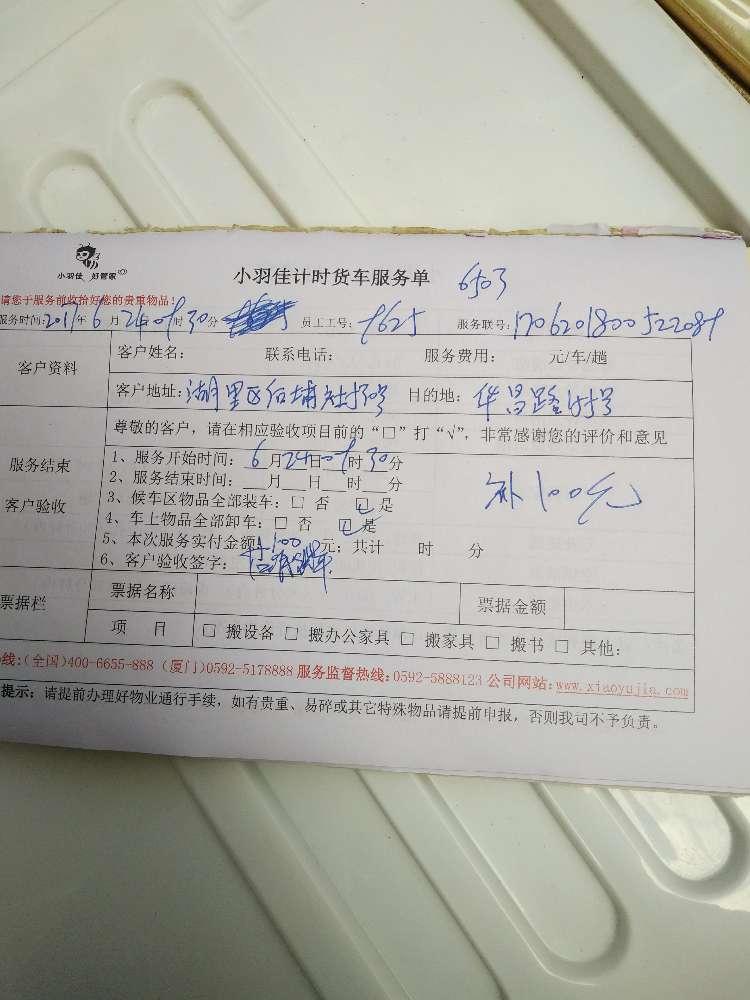 小羽佳 好管家
小羽佳计时货车服务单 6503
请您于服务前收拾好您的贵重物品!
服务时间:2017年6月24日 时30分 员工工号: 服务联号:
客户资料
客户姓名: 联系电话: 服务费用: 元/车/趟
客户地址:湖里区 目的地:华昌路
服务结束
客户验收
尊敬的客户，请在相应验收项目前的“□”打“√”，非常感谢您的评价和意见
1、服务开始时间: 6月24日 时30分
2、服务结束时间: 月 日 时 分
3、候车区物品全部装车: □ 否 □ 是
4、车上物品全部卸车: □ 否 □ 是
补100元
5、本次服务实付金额: 100 元; 共计 时 分
6、客户验收签字:
票据栏
票据名称 票据金额
项 目 □ 搬设备 □ 搬办公家具 □ 搬家具 □ 搬书 □ 其他:
线:(全国)400-6655-888 (厦门)0592-5178888 服务监督热线:0592-5888123 公司网站:www.xiaoyujia.com
提示: 请提前办理好物业通行手续，如有贵重、易碎或其它特殊物品请提前申报，否则我司不予负责。